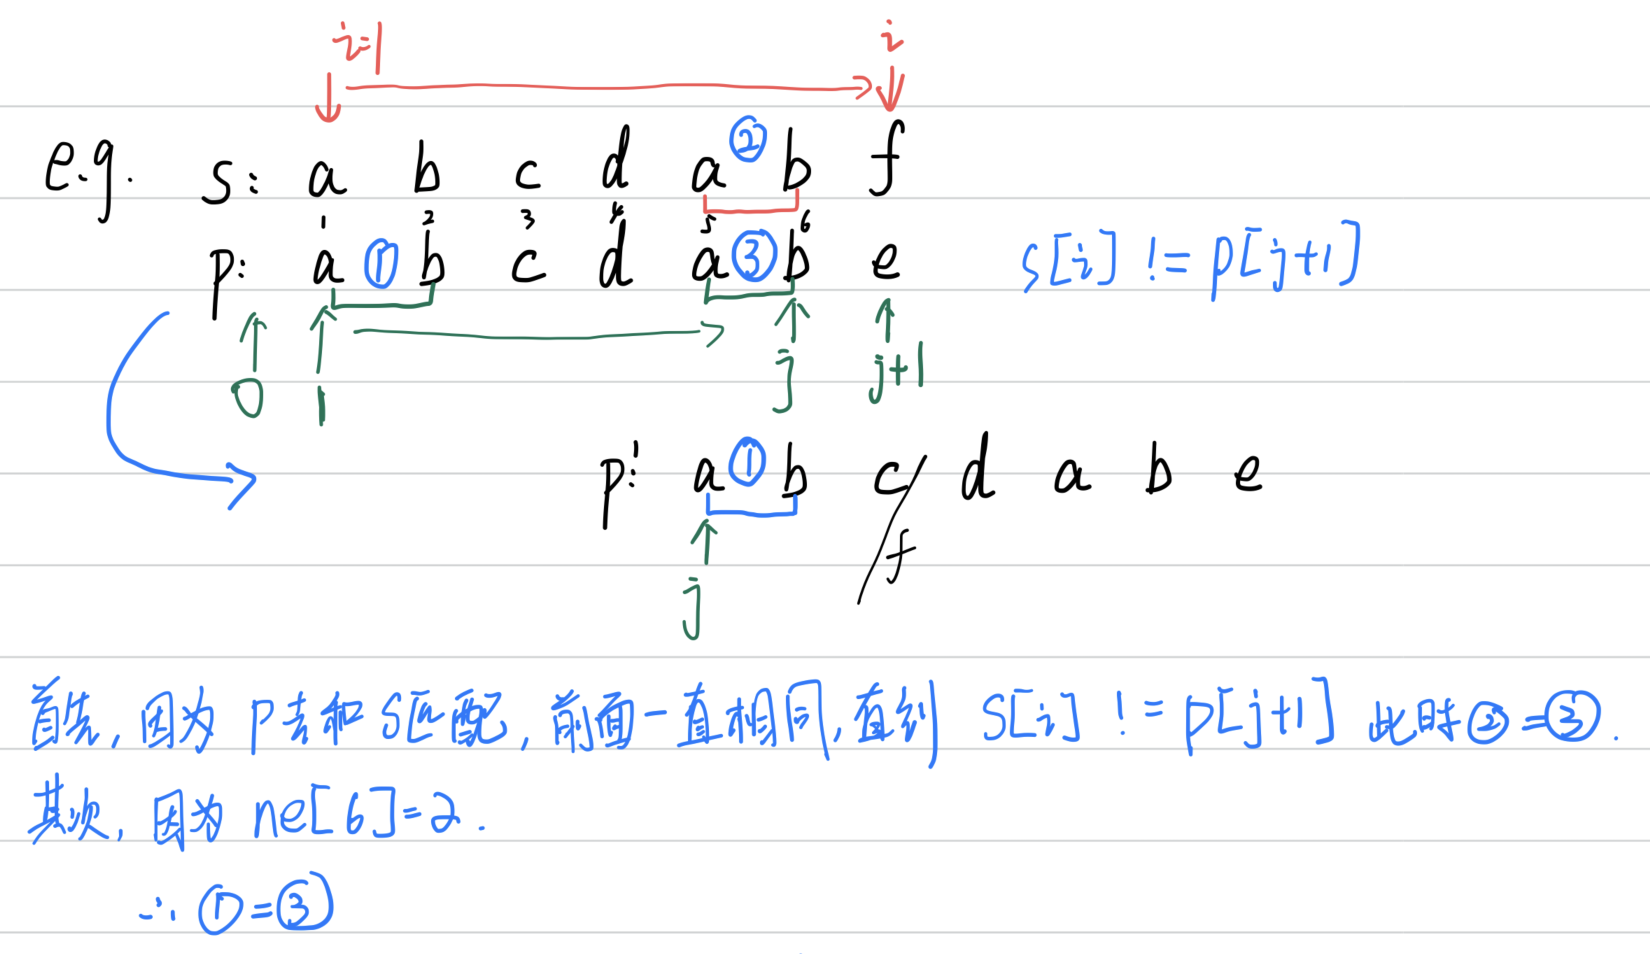 i=1 i
e.g. s: a b c d a ② b f
1 2 3 4 5 6
p: a ① b c d a ③ b e s[i] != p[j+1]
0 1 j j+1
p': a ① b c d a b e
f
j
首先, 因为 p去和 S匹配, 前面一直相同, 直到 S[i] != p[j+1] 此时②=③.
其次, 因为 ne[6]=2.
∴ ①=③